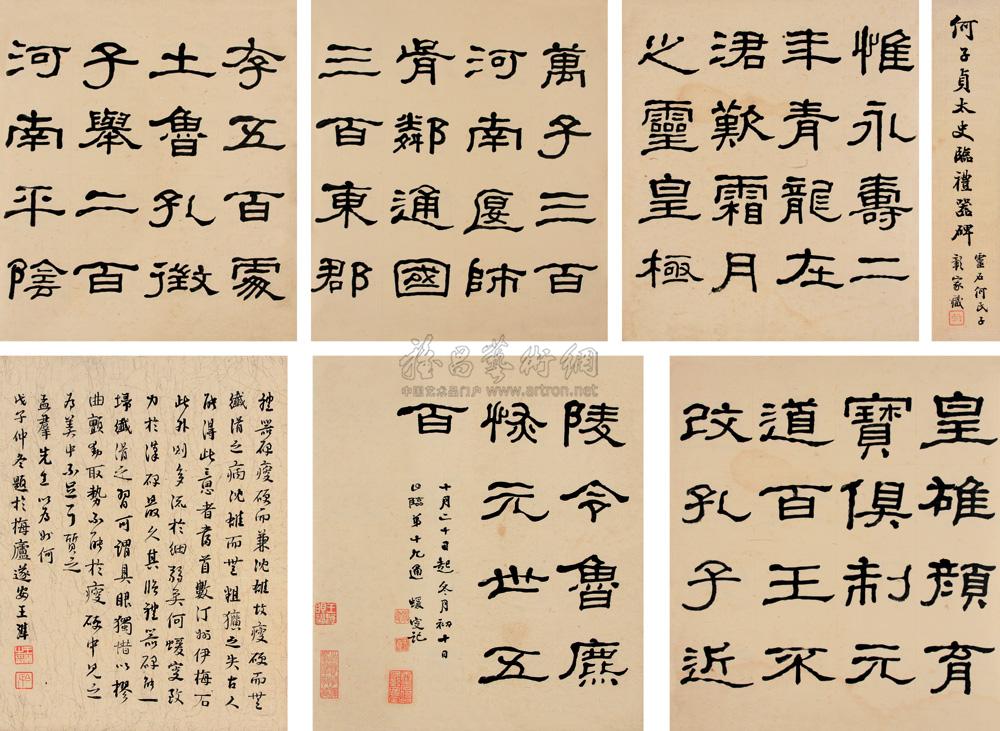 何子貞太史臨禮器碑
靈石何氏子
家藏
惟永壽二
年青龍在
涒歎霜月
之靈皇極
萬子三百
河南匽師
胥鄰通國
三百東郡
李五百處
土魯孔徵
子舉二百
河南平陰
皇雄顏育
寶俱制元
道百王不
改孔子近
陵令魯麃
悆元世五
百
十月二十日起冬月初十日
臨第十九通 蝯叟記
禮器碑瘦硬而兼沈雄故瘦硬而無
纖滑之病沈雄而無粗獷之失古人
能得此意者當首數汀州伊梅石
此外則多流於細弱矣何蝯叟致
力於漢碑最久其臨禮器碑能一
掃纖滑之習可謂具眼獨惜以樛
曲顫動取勢不能於瘦硬中見之
為美中不足耳質之
孟羣先生以為如何
戊子仲冬題於梅廬遂安王
雅昌藝術網
中国艺术品门户 www.artron.net